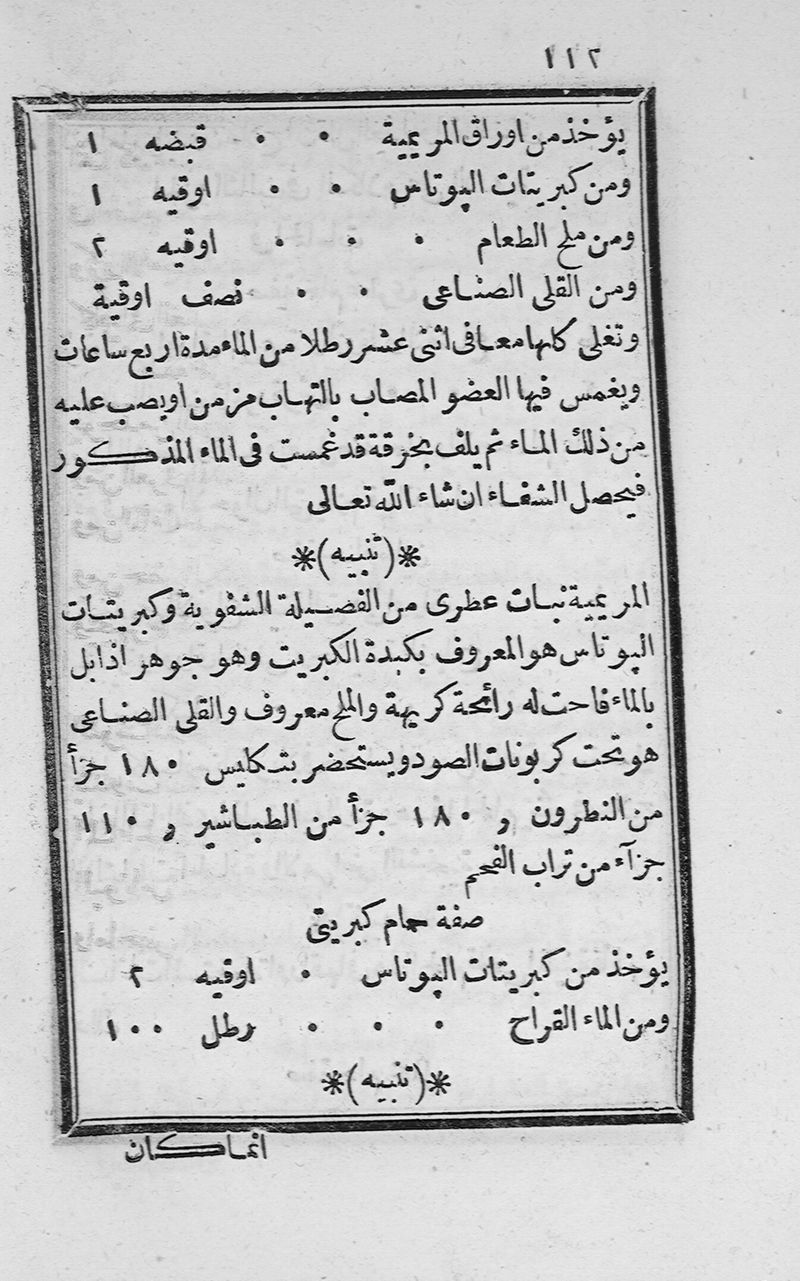 ١١٢
يؤخذ من اوراق المريمية • • قبضه ١
ومن كبريتات الپوتاس • • اوقيه ١
ومن ملح الطعام • • • اوقيه ٢
ومن القلى الصناعى • • نصف اوقية
وتغلى كلها معا فى اثنى عشر رطلا من الماء مدة اربع ساعات
ويغمس فيها العضو المصاب بالتهاب مزمن او يصب عليه
من ذلك الماء ثم يلف بخرقة قد غمست فى الماء المذكور
فيحصل الشفاء ان شاء الله تعالى
*(تنبيه)*
المريمية نبات عطرى من الفصيلة الشفوية وكبريتات
الپوتاس هو المعروف بكبدة الكبريت وهو جوهر اذا بل
بالماء فاحت له رائحة كريهة والملح معروف والقلى الصناعى
هو تحت كربونات الصود ويستحضر بتكليس ١٨٠ جزأ
من النطرون و ١٨٠ جزأ من الطباشير و ١١٠
جزآء من تراب الفحم
صفة حمام كبريتى
يؤخذ من كبريتات الپوتاس • اوقيه ٢
ومن الماء القراح • • • رطل ١٠٠
*(تنبيه)*
انما كان